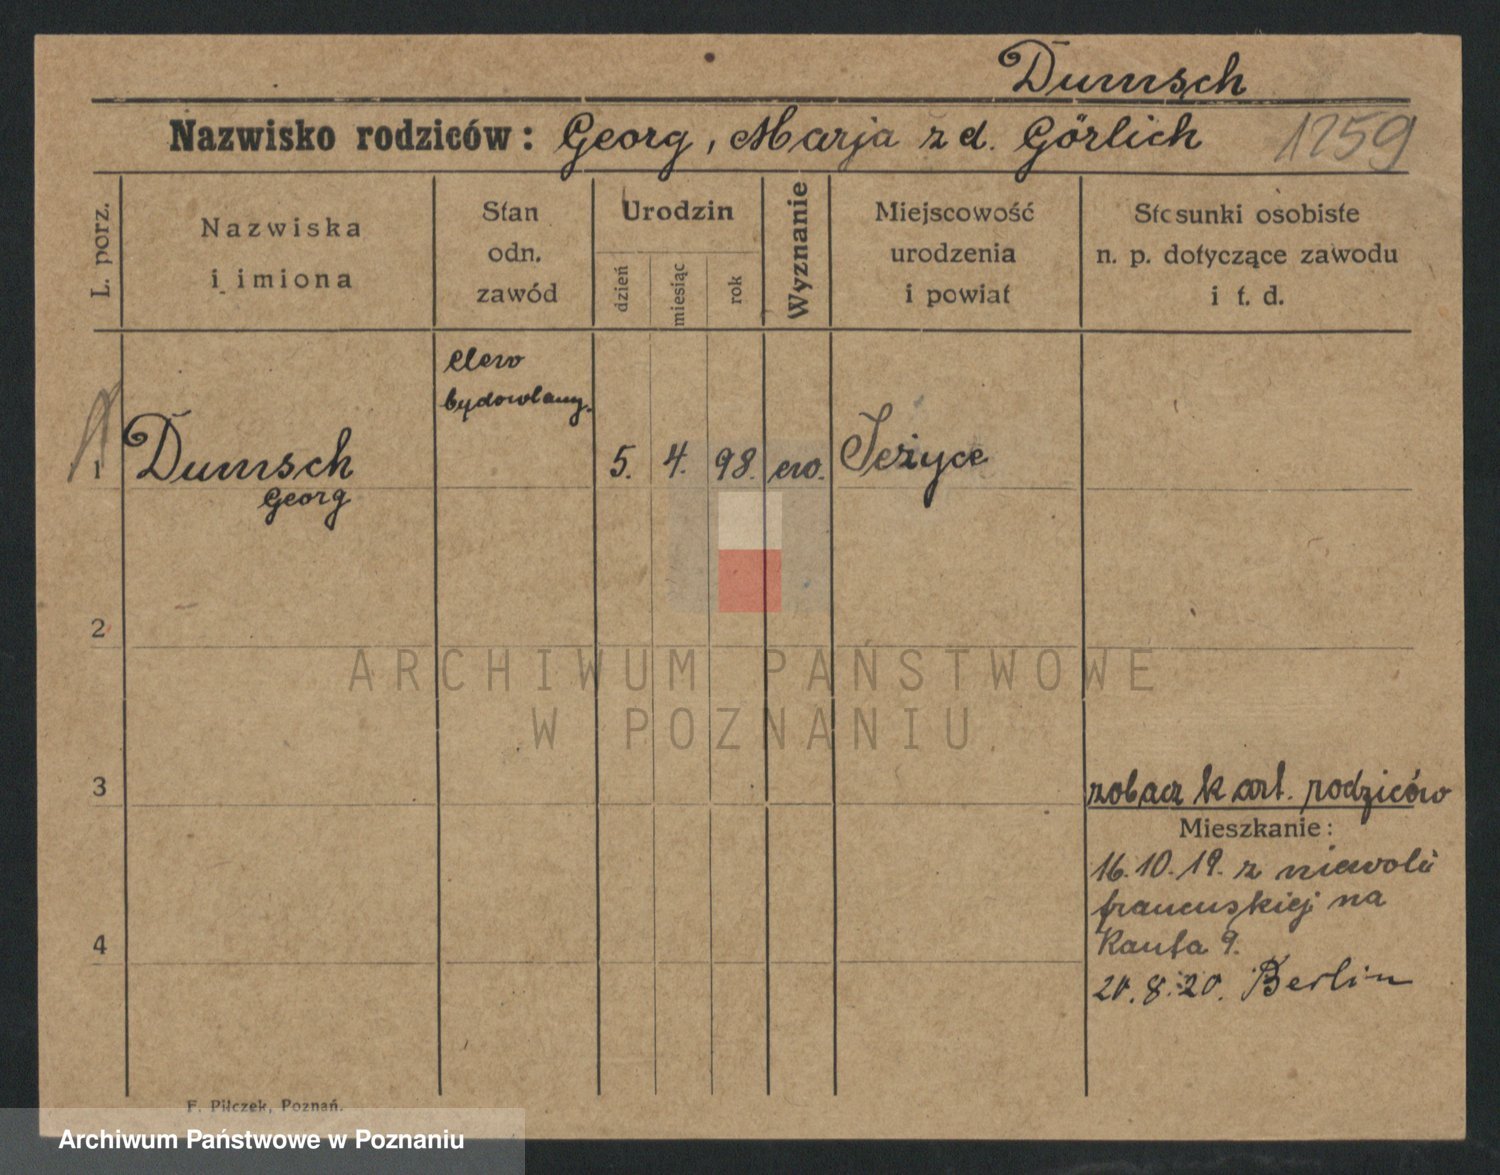 Dumsch
Nazwisko rodziców: Georg, Marja z d. Görlich 1259
L. porz.
Nazwiska
i imiona
Stan
odn.
zawód
Urodzin
dzień
miesiąc
rok
Wyznanie
Miejscowość
urodzenia
i powiat
Stosunki osobiste
n. p. dotyczące zawodu
i t. d.
elew
bydowlany.
1 Dumsch 5. 4. 98. ew. Jeżyce
Georg
2
3
zobacz kart. rodziców
Mieszkanie:
16.10.19. z niewoli
francuskiej na
Kanta 9.
4
20.8.20. Berlin
F. Pilczek, Poznań.
ARCHIWUM PAŃSTWOWE
W POZNANIU
Archiwum Państwowe w Poznaniu